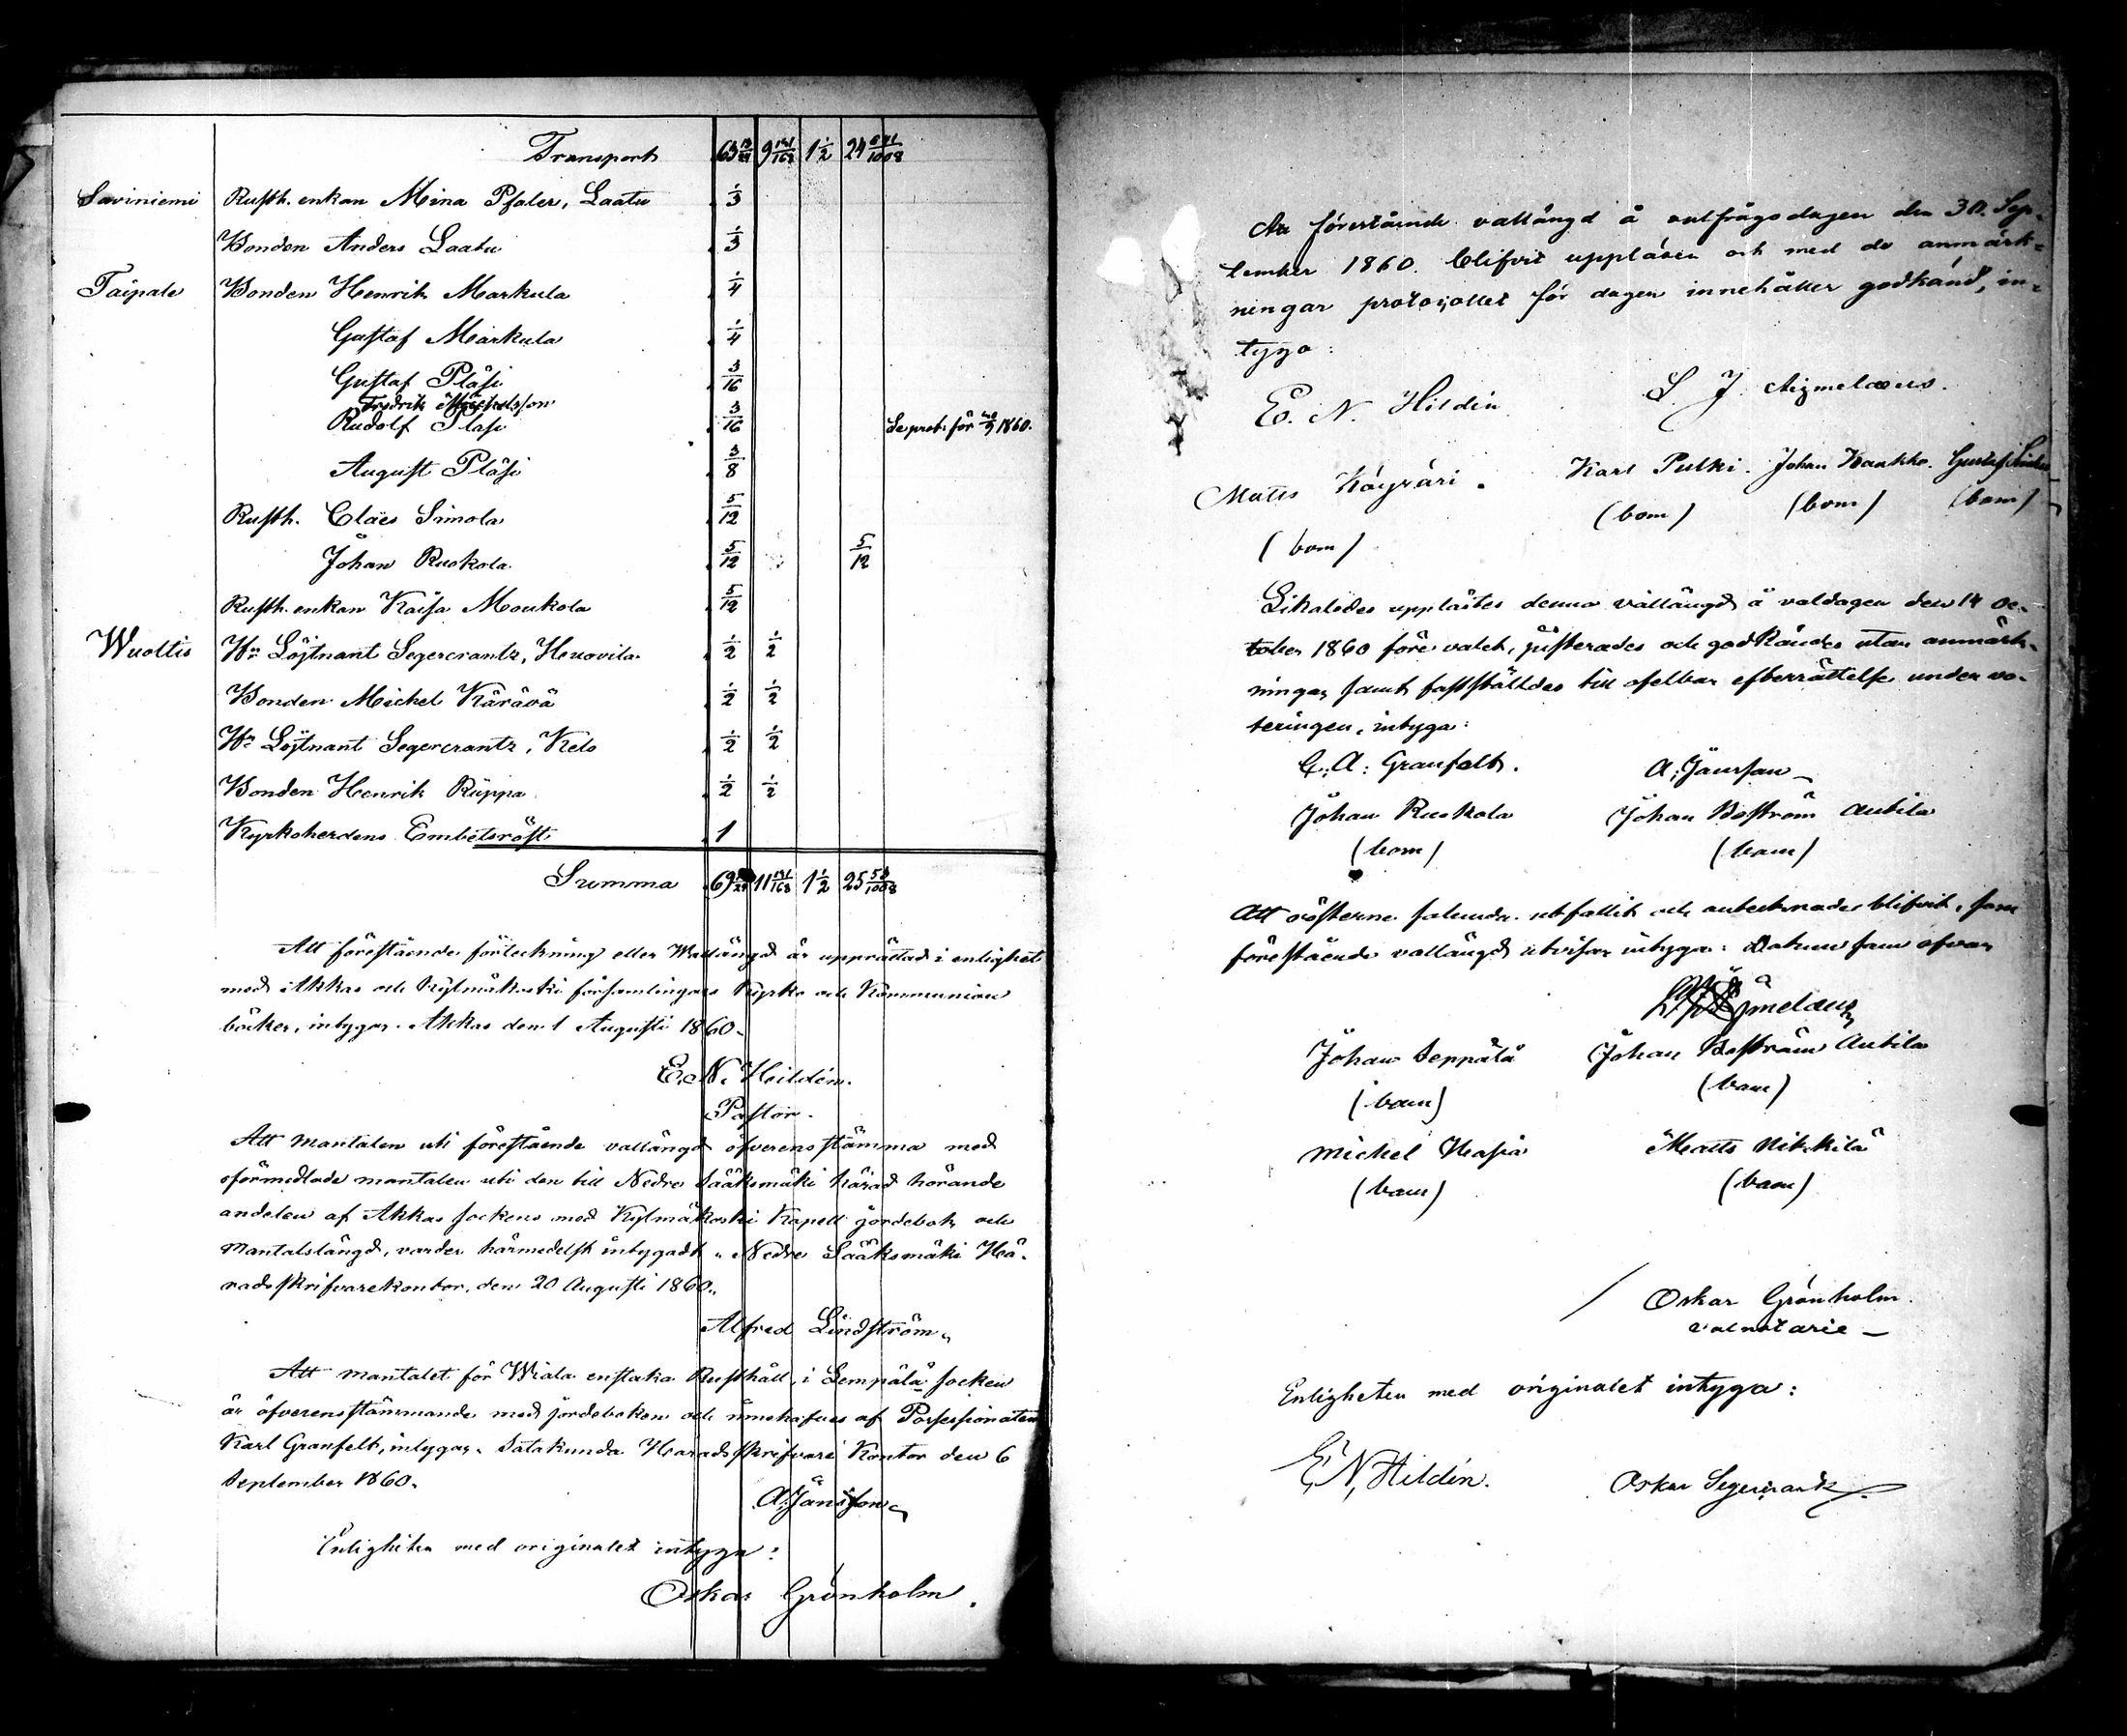 Transport 63 13/24 9 141/168 1 1/2 24 641/1008
Saviniemi Rusth. enkan Mina Pfaler, Laatu 1/3
Bonden Anders Laatu 1/3
Taipale Bonden Henrik Markula 1/4
Gustaf Markula 1/4
Gustaf Pläsi 3/16
Fredrik Michelsson
Rudolf Pläsi 3/16 Se prot. för 30/9 1860.
August Pläsi 3/8
Rusth. Claës Simola 5/12
Johan Ruokola 5/12 5/12
Rusth. enkan Kaisa Moukola 5/12
Wuoltis Hr Löjtnant Segercrantz, Huovila 1/2 1/2
Bonden Michel Kärävä 1/2 1/2
Hr Löjtnant Segercrantz, Kelo 1/2 1/2
Bonden Henrik Rüppa 1/2 1/2
Kyrkoherdens Embetsröst 1
Summa 69 11 141/168 1 1/2 25 53/1008
Att förestående förteckning eller Wallängd är upprättad i enlighet
med Akkas och Kylmäkoski församlingars Kyrko och Kommunion
böcker, intygar. Akkas den 1 Augusti 1860.
E. N. Hildén.
Pastor.
Att mantalen uti förestående vallängd öfverensstämma med
oförmedlade mantalen uti den till Nedre Sääksmäki härad hörande
andelen af Akkas socken med Kylmäkoski Kapell jordebok och
Mantalslängd, varder härmedelst intygadt. Nedre Sääksmäki Hä-
radsskrifvarekontor, den 20 Augusti 1860.
Alfred Lindström.
Att mantalet för Wiala enstaka Rusthåll, i Lempälä socken
är öfverensstämmande med jordeboken och innehafves af Possessionaten
Karl Granfelt, intygar. Satakunda Häradsskrifvare Kontor den 6
September 1860.
A. Jansson
Enligheten med originalet intyga:
Oskar Grönholm.
Att förestående vallängd å valfrågodagen den 30. Sep-
tember 1860. blifvit uppläsen och med de anmärk-
ningar protocollet för dagen innehåller godkänd, in-
tyga:
E. N. Hildén. L J Aejmelaeus.
Matts Köyräri. Karl Pulki. Johan Kaakko. Gustaf
(bom) (bom) (bom) (bom)
Likaledes upplästes denna vallängd å valdagen den 14 Oc-
tober 1860 före valet, justerades och godkändes utan anmärk-
ningar samt fastställdes till ofelbar efterrättelse under vo-
teringen, intyga:
C. A. Granfelt. A. Jansson
Johan Ruokola Johan Boström Anttila
(bom) (bom)
Att rösterne salunda utfallit och antecknade blifvit, som
förestående vallängd utvisar intyga: Datum som ofvan
L. J. Aejmelaeus
Johan Seppälä Johan Boström Anttila
(bom) (bom)
Michel Hasia Matts Nikkilä
(bom) (bom)
Oskar Grönholm.
valnotarie
Enligheten med originalet intyga:
E. N. Hildén. Oskar